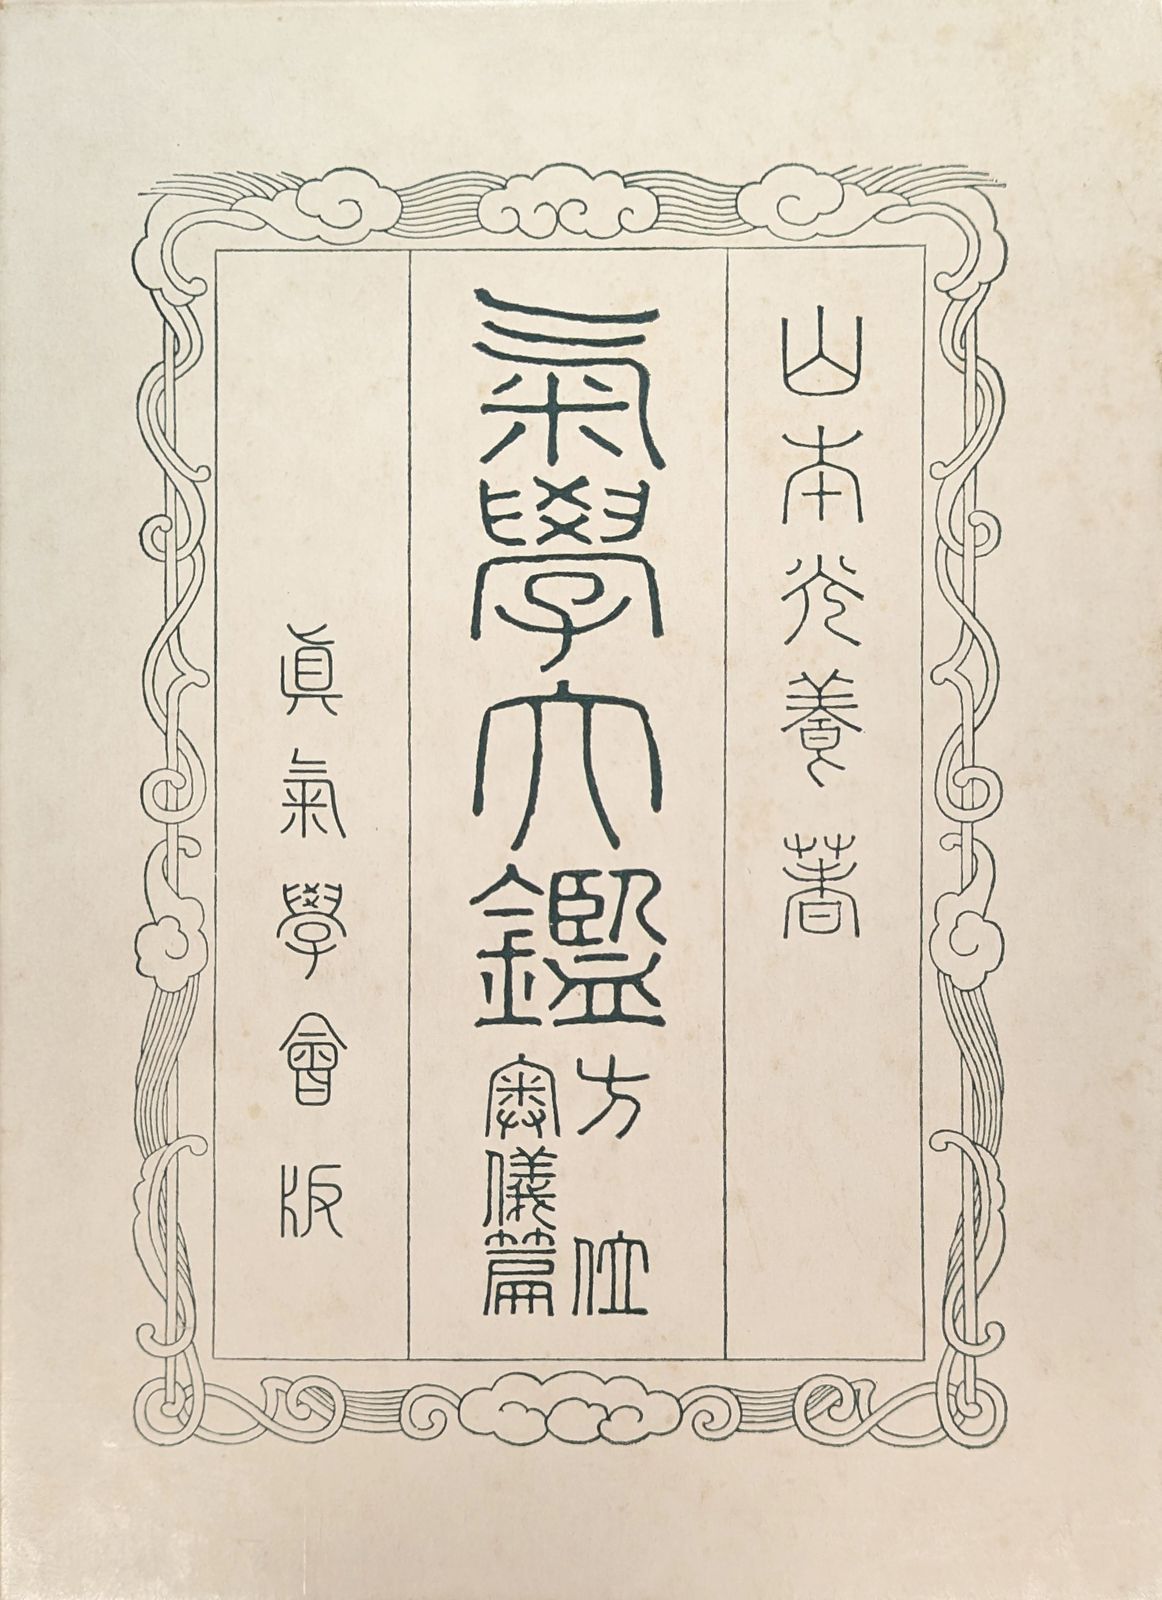 山本光養著
氣學大鑑
方位
奧儀篇
眞氣學會版